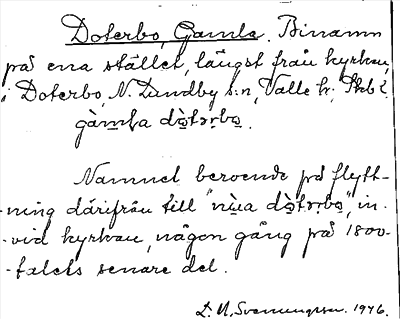 Doterbo, Gamla. Binamn
på ena stället, längst från kyrkan,
i Doterbo, N. Lundby s:n, Valle hd, Skbl.
gàmla dò̱tərbo̱.
Namnet beroende på flytt-
-ning därifrån till "nùa dò̱tərbo̱", in-
-vid kyrkan, någon gång på 1800-
-talets senare del.
1946.